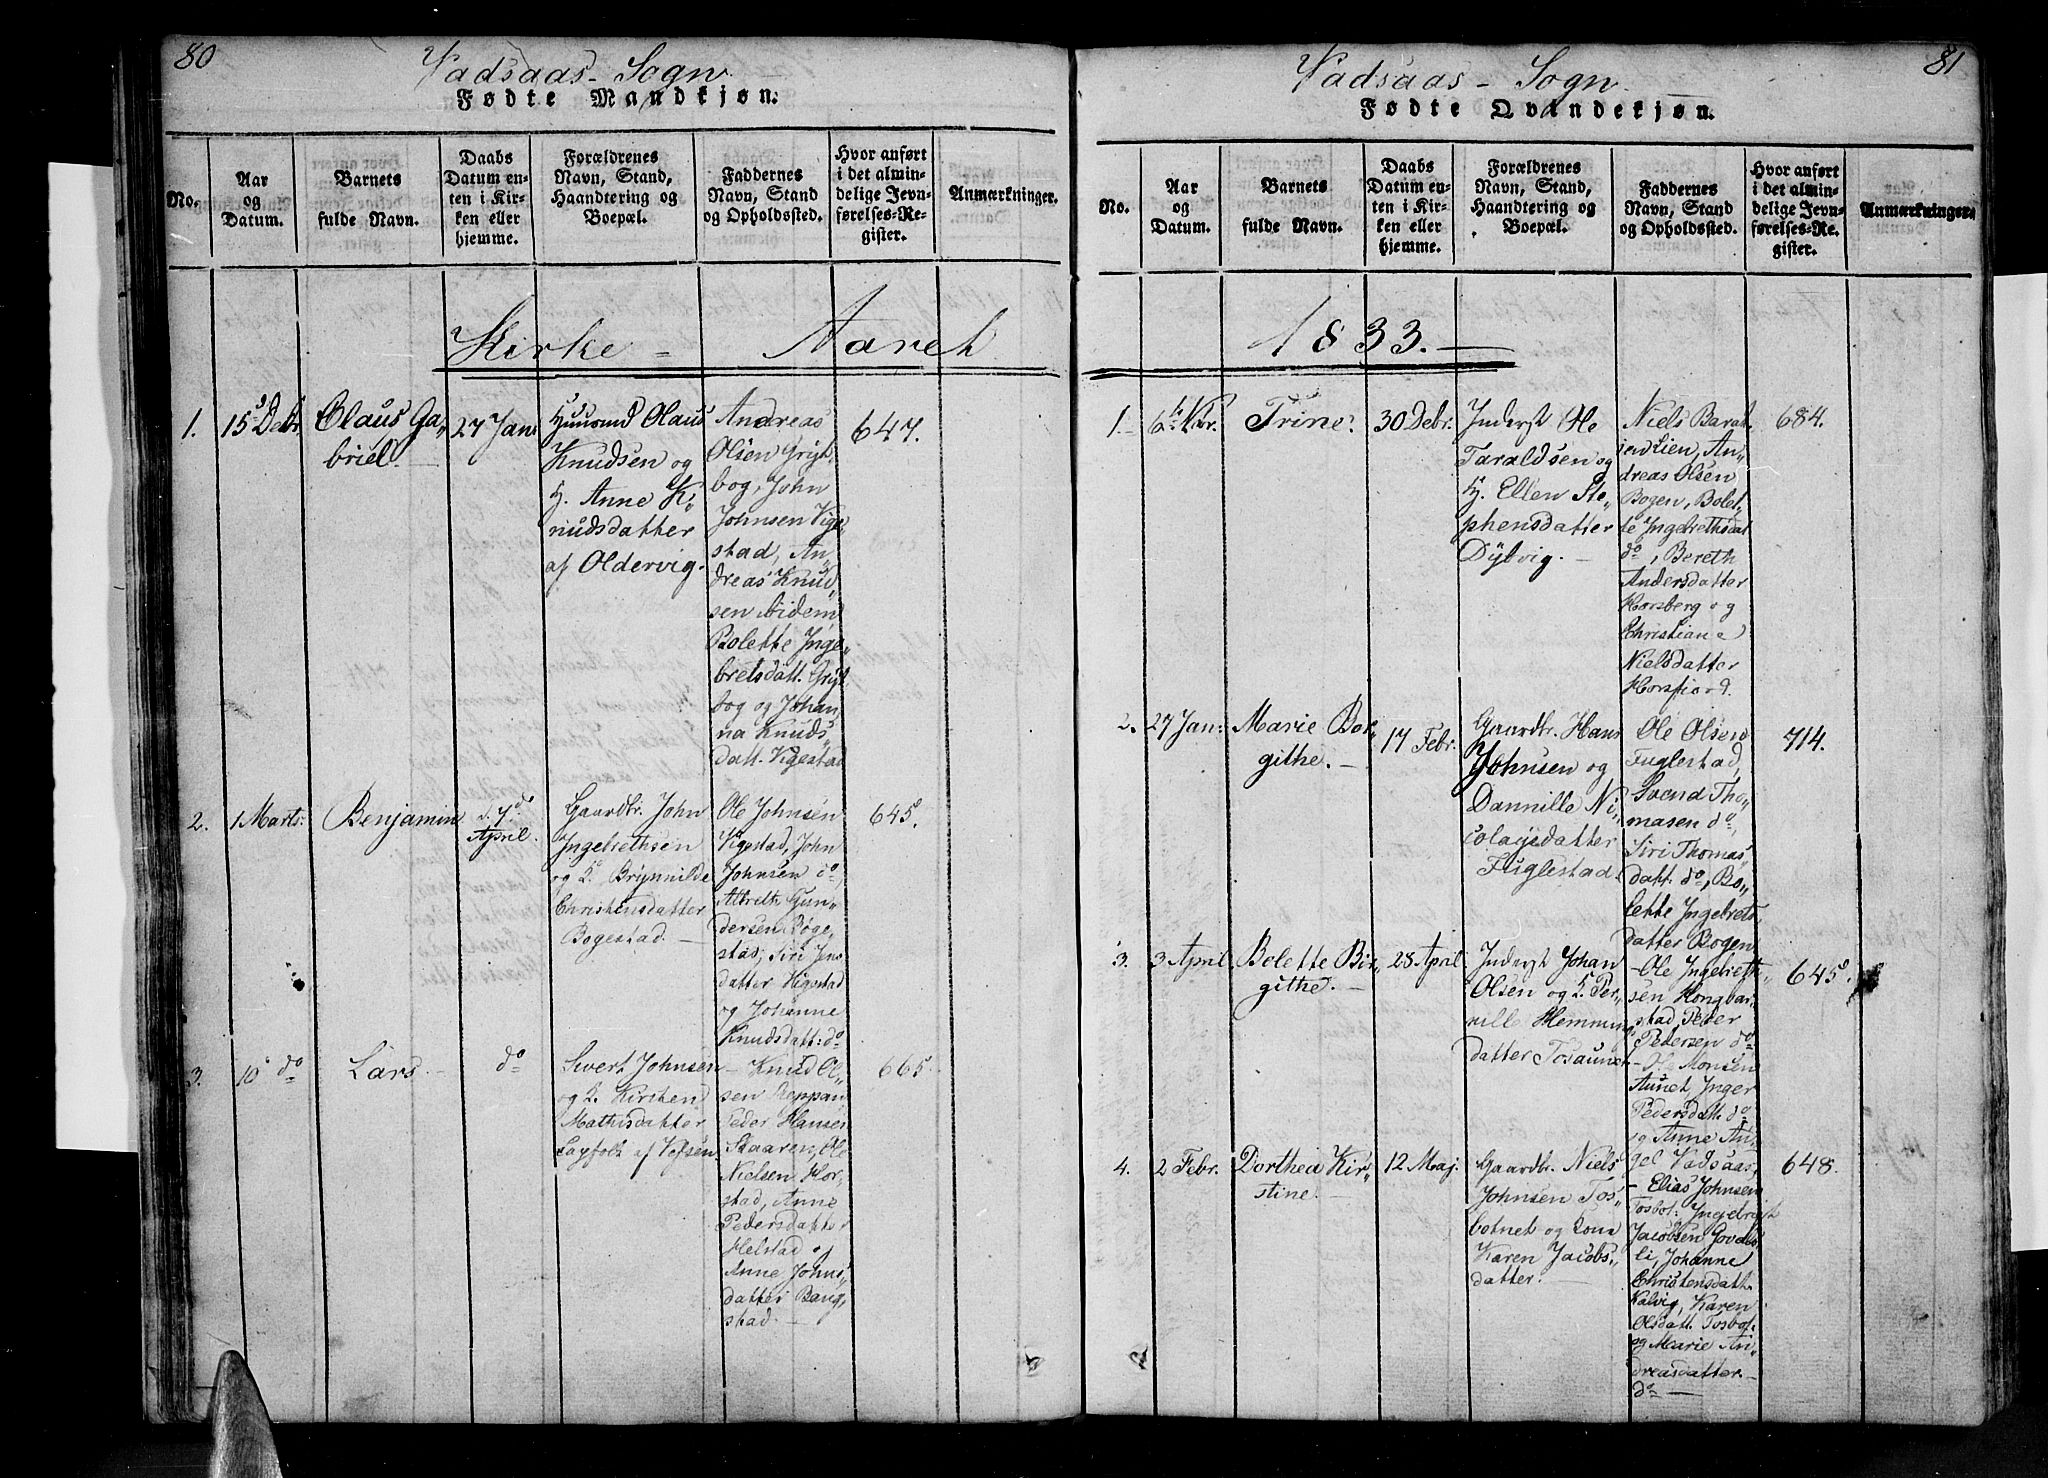 80
Vadsaas - Sogn
Fødte Mandkjøn.
No.
Aar
og
Datum.
Barnets
fulde Navn.
Daabs
Datum en-
ten i Kir-
ken eller
hjemme.
Forældrenes
Navn, Stand,
Haandtering og
Boepæl.
Faddernes
Navn, Stand
og Opholdssted.
Hvor anført
i det almin-
delige Jevn-
førelses-Re-
gister.
Anmærkninger.
Kirke = Aaret
1.
15 Debr.
Olaus Ga-
briel.
27 Jan:
Huusmd Olaus
Knudsen og
H. Anne K-
nudsdatter
af Oldervig.
Andreas
Olsen
bog, John
Johnsen Vige-
stad, An-
dreas Knud-
sen ibidem
Bolette Inge-
bretsdatt.
bog og Johan-
na Knuds-
datt. Vigestad
647.
2.
1 Marts.
Benjamin
d. 7de
April.
Gaardbr. John
Ingebrethsen
og K. Brynnilde
Christensdatter
Bogestad.
Ole Johnsen
Vigestad, John
Johnsen do,
Albreth Gun-
dersen Boge-
stad, Siri Jens
datter Vigestad
og Johanne
Knudsdatt: do
645.
3.
10 do
Lars.
do
Sivert Johnsen
og K. Kirsten
Mathisdatter
Lapfolk af Vefsen.
Knud Ol-
sen Reppan
Peder Hansen
Staaren, Ole
Nielsen Hor-
stad, Anne
Pedersdatter
Helstad og
Anne Johns-
datter Bang-
stad.
665.
81
Vadsaas - Sogn.
Fødte Qvindekjøn.
No.
Aar
og
Datum.
Barnets
fulde Navn.
Daabs
Datum en-
ten i Kir-
ken eller
hjemme.
Forældrenes
Navn, Stand,
Haandtering og
Boepæl.
Faddernes
Navn, Stand
og Opholdssted.
Hvor anført
i det almin-
delige Jevn-
førelses-Re-
gister.
Anmærkninger.
1833.
1.
Trine.
30 Debr.
Inderst Ole
Taraldsen og
H. Ellen Ste-
phensdatter
Dybvig.
Niels
Lien, An-
dreas Olsen
Bogen, Bolet-
te Ingebrethsdat
do, Bereth
Andersdatter
Horsberg og
Christiane
Nielsdatter
Horsfiord.
684.
2.
27 Jan:
Marie Bor-
githe.
17 Febr.
Gaardbr. Hans
Johnsen og
Dannille Ni-
colaysdatter
Fuglestad.
Ole Olsen
Fuglestad,
Svend Tho-
masen do,
Siri Thomas-
datt. do, Bo-
lette Ingebrets-
datter Bogen
714.
3.
3 April
Bolette Bir-
githe.
28 April.
Inderst Johan
Olsen og K. Per-
nille Hemming-
datter Tosaunet
Ole Ingebreth-
sen Hongbar-
stad, Peder
Pedersen do
Monsen
Aunet, Inger
Pedersdatt. do
og Anne An-
gel Vadsaas
645.
4.
2 Febr.
Dorthea Kir-
stine.
12 Maj.
Gaardbr. Niels
Johnsen Tos-
botnet og Kona
Karen Jacobs-
datter.
Elias Johnsen
Tosbot: Ingebrigt
Jacobsen
li, Johanne
Christensdatt.
Kalvig, Karen
Olsdatt. Tosbot.
og Marie An-
dreasdatter
do
648.